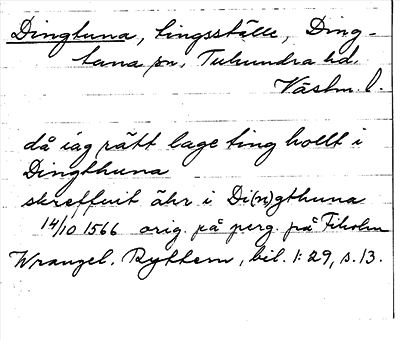 Dingtuna, tingsställe, Ding-
tuna sn, Tuhundra hd,
Västm. l.
då iag rätt lage ting hollt i
Dingthuna
skreffuit åhr i Di(n)gthuna
14/10 1566 orig. på perg. på Fiholm
Wrangel. Ryttern, bil. 1:29, s. 13.